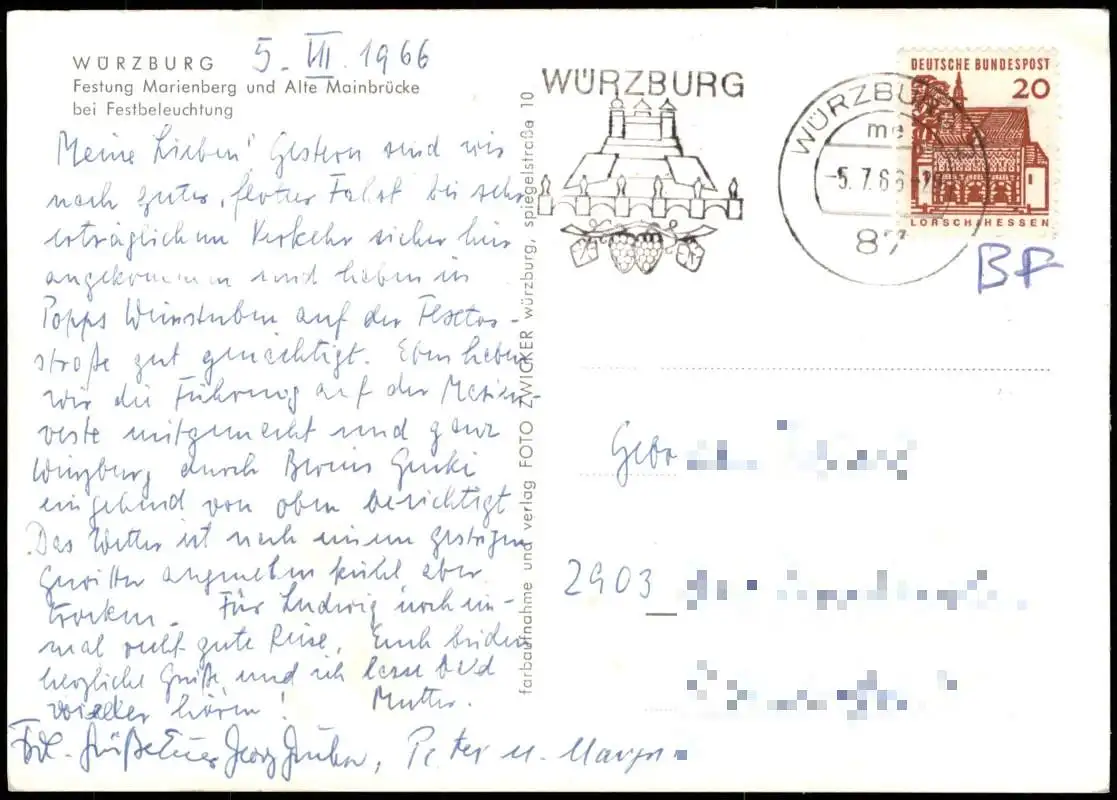 WÜRZBURG
Festung Marienberg und Alte Mainbrücke
bei Festbeleuchtung
5. VII. 1966
Meine Lieben! Gestern sind wir
nach guter, flotter Fahrt bei sehr
erträglichem Verkehr sicher hier
angekommen und haben in
Popps Weinstuben auf der
straße gut genächtigt. Eben haben
wir die Führung auf der Marien-
veste mitgemacht und ganz
Würzburg durch
eingehend von oben besichtigt
Das Wetter ist nach einem gestrigen
Gewitter angenehm kühl aber
trocken. Für Ludwig noch ein-
mal recht gute Reise, Euch beiden
herzliche Grüße und ich lasse bald
wieder hören! Mutter.
Grüße Euer Georg, Peter u.
farbaufnahme und verlag FOTO ZWICKER würzburg, spiegelstraße 10
WÜRZBURG
WÜRZBURG
me
-5.7.66
87
DEUTSCHE BUNDESPOST
20
LORSCH/HESSEN
BF
2903